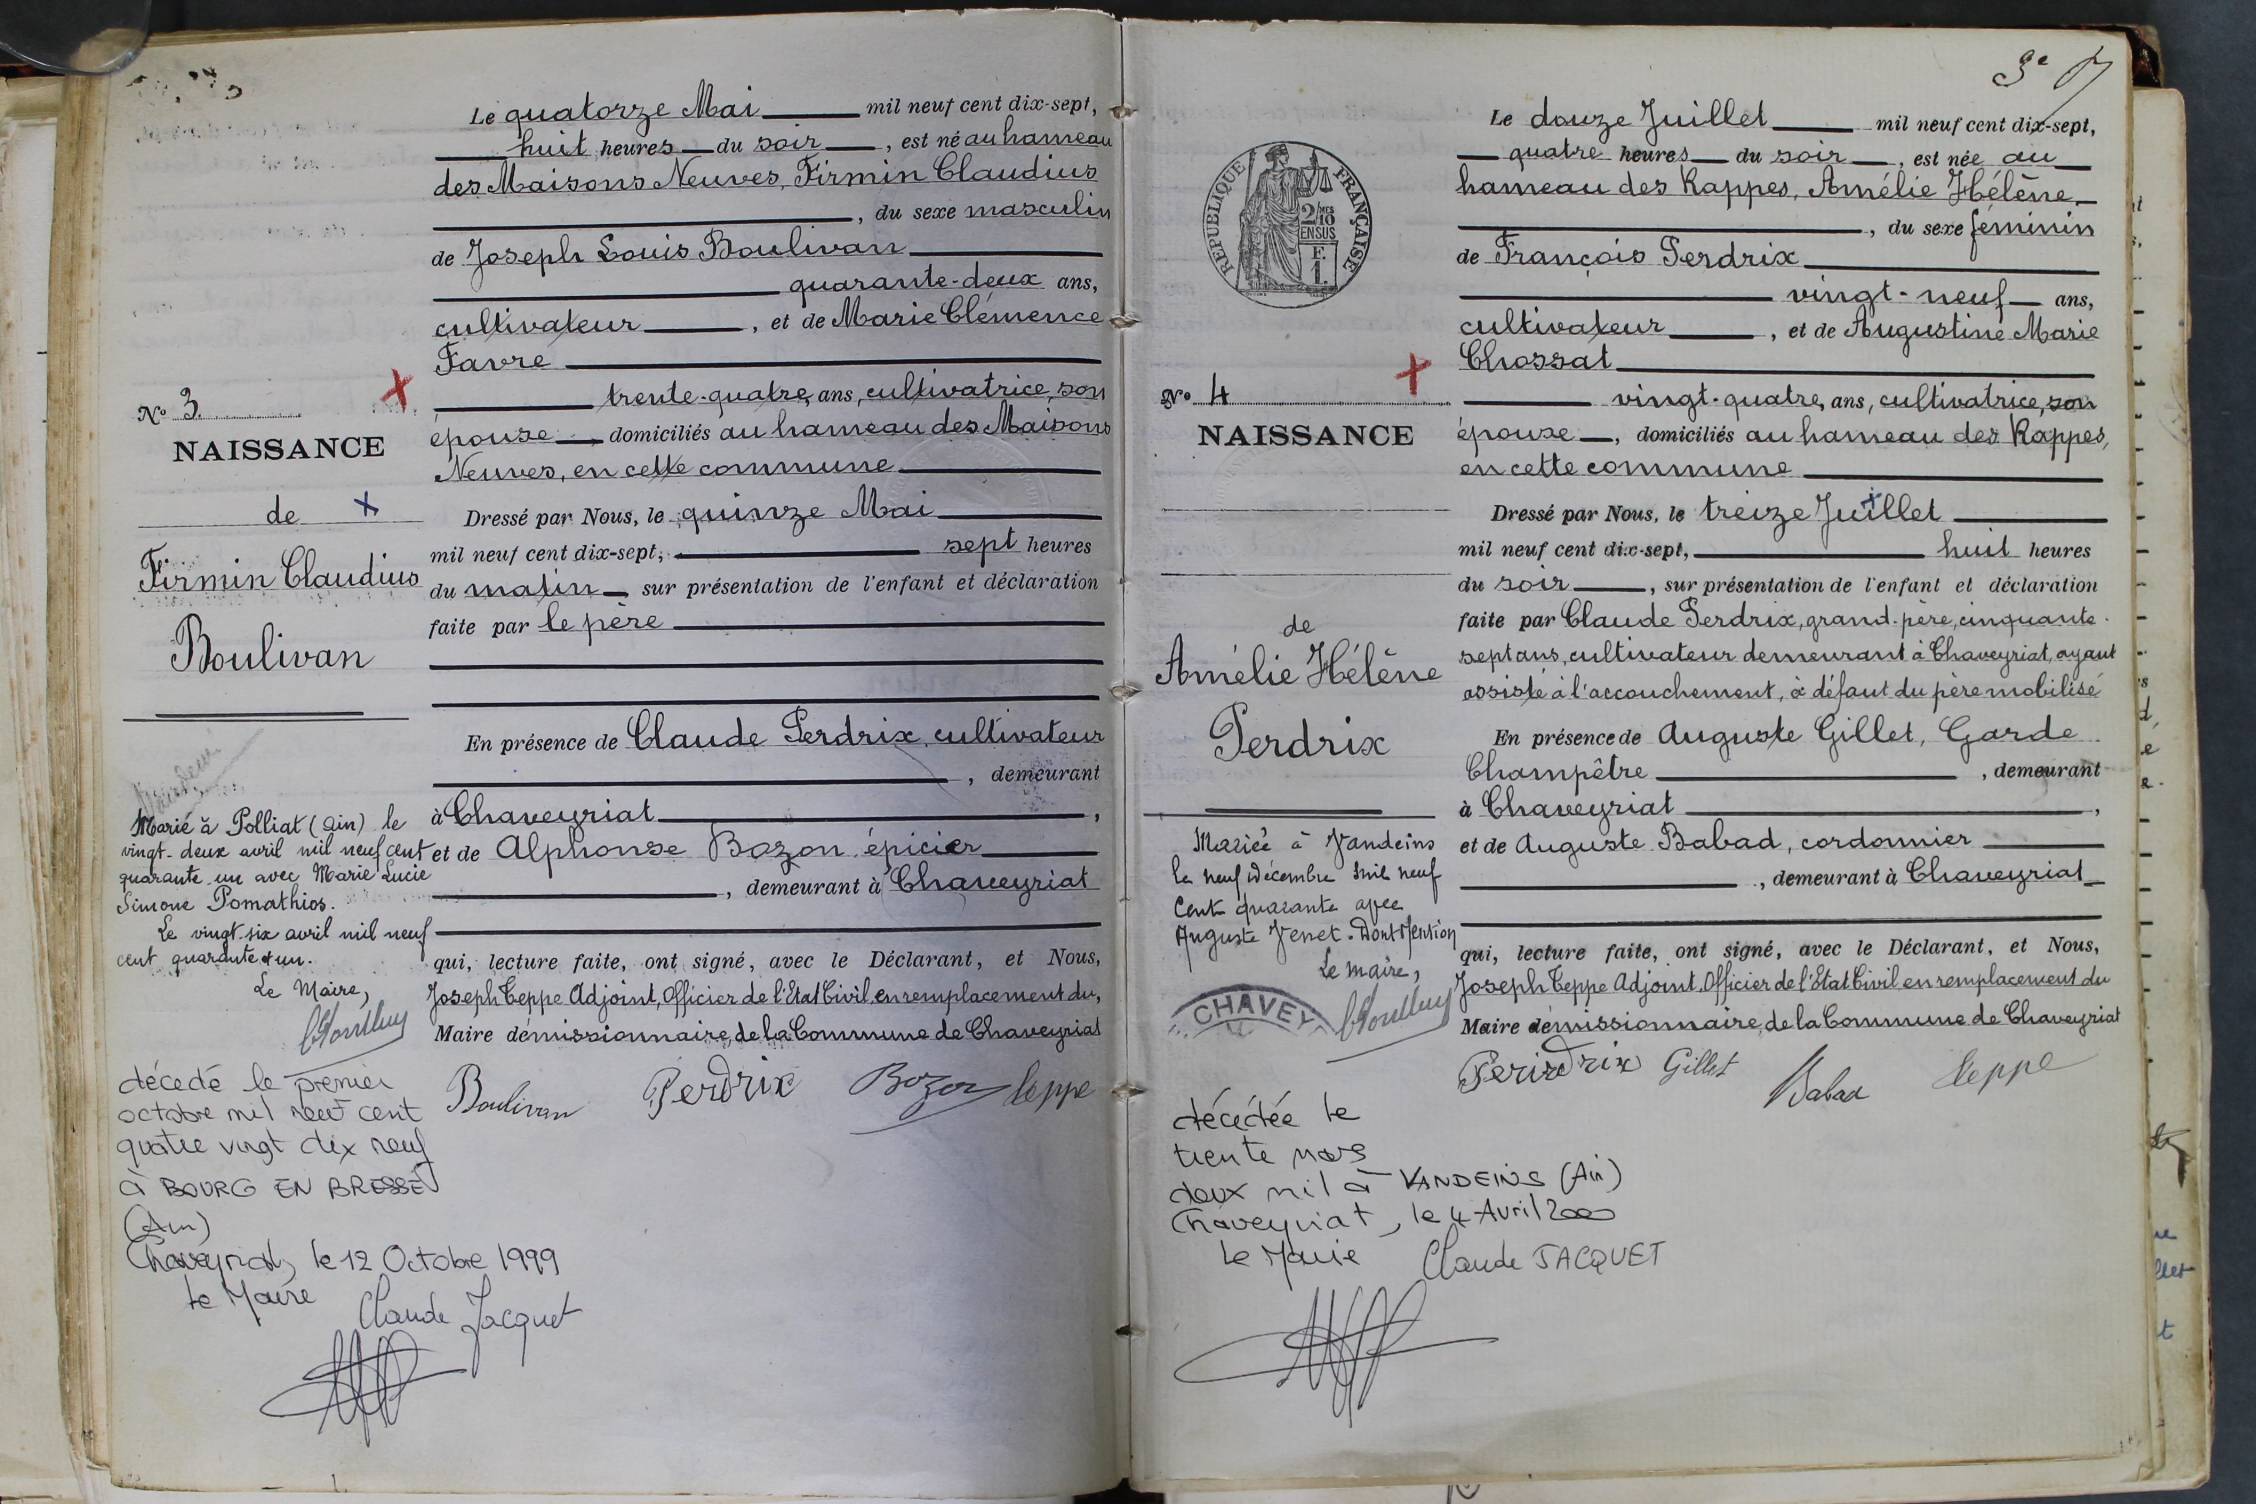 Le quatorze Mai mil neuf cent dix-sept,
huit heures du soir, est né au hameau
des Maisons Neuves, Firmin Claudius
, du sexe masculin
de Joseph Louis Boulivan
quarante-deux ans,
cultivateur, et de Marie Clémence
Favre
trente-quatre ans, cultivatrice, son
épouse, domiciliés au hameau des Maisons
Neuves, en cette commune
Dressé par Nous, le quinze Mai
mil neuf cent dix-sept, sept heures
du matin, sur présentation de l'enfant et déclaration
faite par le père
En présence de Claude Perdrix, cultivateur
, demeurant
à Chaveyriat,
et de Alphonse Bozon, épicier
, demeurant à Chaveyriat
qui, lecture faite, ont signé, avec le Déclarant, et Nous,
Joseph Teppe Adjoint, Officier de l'Etat Civil, en remplacement du,
Maire démissionnaire, de la Commune de Chaveyriat
Boulivan Perdrix Bozon Teppe
No 3
NAISSANCE
de
Firmin Claudius
Boulivan
Marié à Polliat (Ain) le
vingt-deux avril mil neuf cent
quarante un avec Marie Lucie
Simone Pomathios.
Le vingt-six avril mil neuf
cent quarante et un.
Le Maire,
décédé le premier
octobre mil neuf cent
quatre vingt dix neuf
à BOURG EN BRESSE
(Ain)
Chaveyriat, le 12 Octobre 1999
Le Maire
Claude Jacquet
3e
Le douze Juillet mil neuf cent dix-sept,
quatre heures du soir, est née au
hameau des Rappes, Amélie Hélène,
, du sexe féminin
de François Perdrix
vingt-neuf ans,
cultivateur, et de Augustine Marie
Chossat
vingt-quatre ans, cultivatrice, son
épouse, domiciliés au hameau des Rappes,
en cette commune
Dressé par Nous, le treize Juillet
mil neuf cent dix-sept, huit heures
du soir, sur présentation de l'enfant et déclaration
faite par Claude Perdrix, grand-père, cinquante-
sept ans, cultivateur demeurant à Chaveyriat, ayant
assisté à l'accouchement, à défaut du père mobilisé
En présence de Auguste Gillet, Garde
Champêtre, demeurant
à Chaveyriat,
et de Auguste Babad, cordonnier
, demeurant à Chaveyriat
qui, lecture faite, ont signé, avec le Déclarant, et Nous,
Joseph Teppe Adjoint, Officier de l'Etat Civil en remplacement du
Maire démissionnaire, de la Commune de Chaveyriat
Perdrix Gillet Babad Teppe
RÉPUBLIQUE FRANÇAISE
2/10MES
EN SUS
F.
1.
No 4
NAISSANCE
de
Amélie Hélène
Perdrix
Mariée à Vandeins
le neuf Décembre mil neuf
Cent quarante avec
Auguste Venet. Dont Mention
Le maire,
CHAVEY
décédée le
trente mars
deux mil à VANDEINS (Ain)
Chaveyriat, le 4 Avril 2000
Le Maire Claude JACQUET